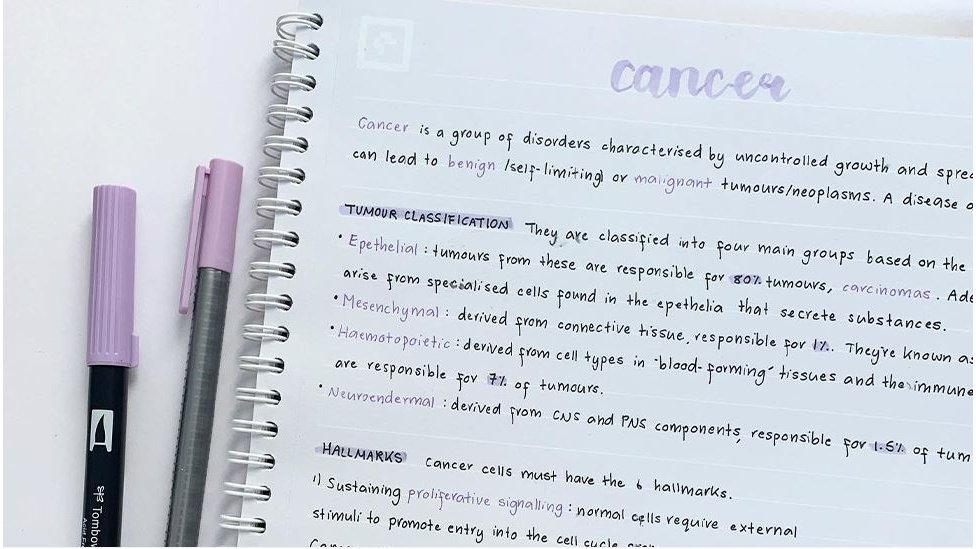 cancer
Cancer is a group of disorders characterised by uncontrolled growth and sprea
can lead to benign (self-limiting) or malignant tumours/neoplasms. A disease o
TUMOUR CLASSIFICATION They are classified into four main groups based on the
• Epethelial : tumours from these are responsible for 80% tumours, carcinomas. Ade
arise from specialised cells found in the epethelia that secrete substances.
• Mesenchymal : derived from connective tissue, responsible for 1%. They're known as
• Haemotopoietic : derived from cell types in "blood-forming" tissues and the immune
are responsible for 7% of tumours.
• Neuroendermal : derived from CNS and PNS components, responsible for 1.5% of tum
HALLMARKS Cancer cells must have the 6 hallmarks.
1) Sustaining proliferative signalling : normal cells require external
stimuli to promote entry into the cell cycle
Tombow